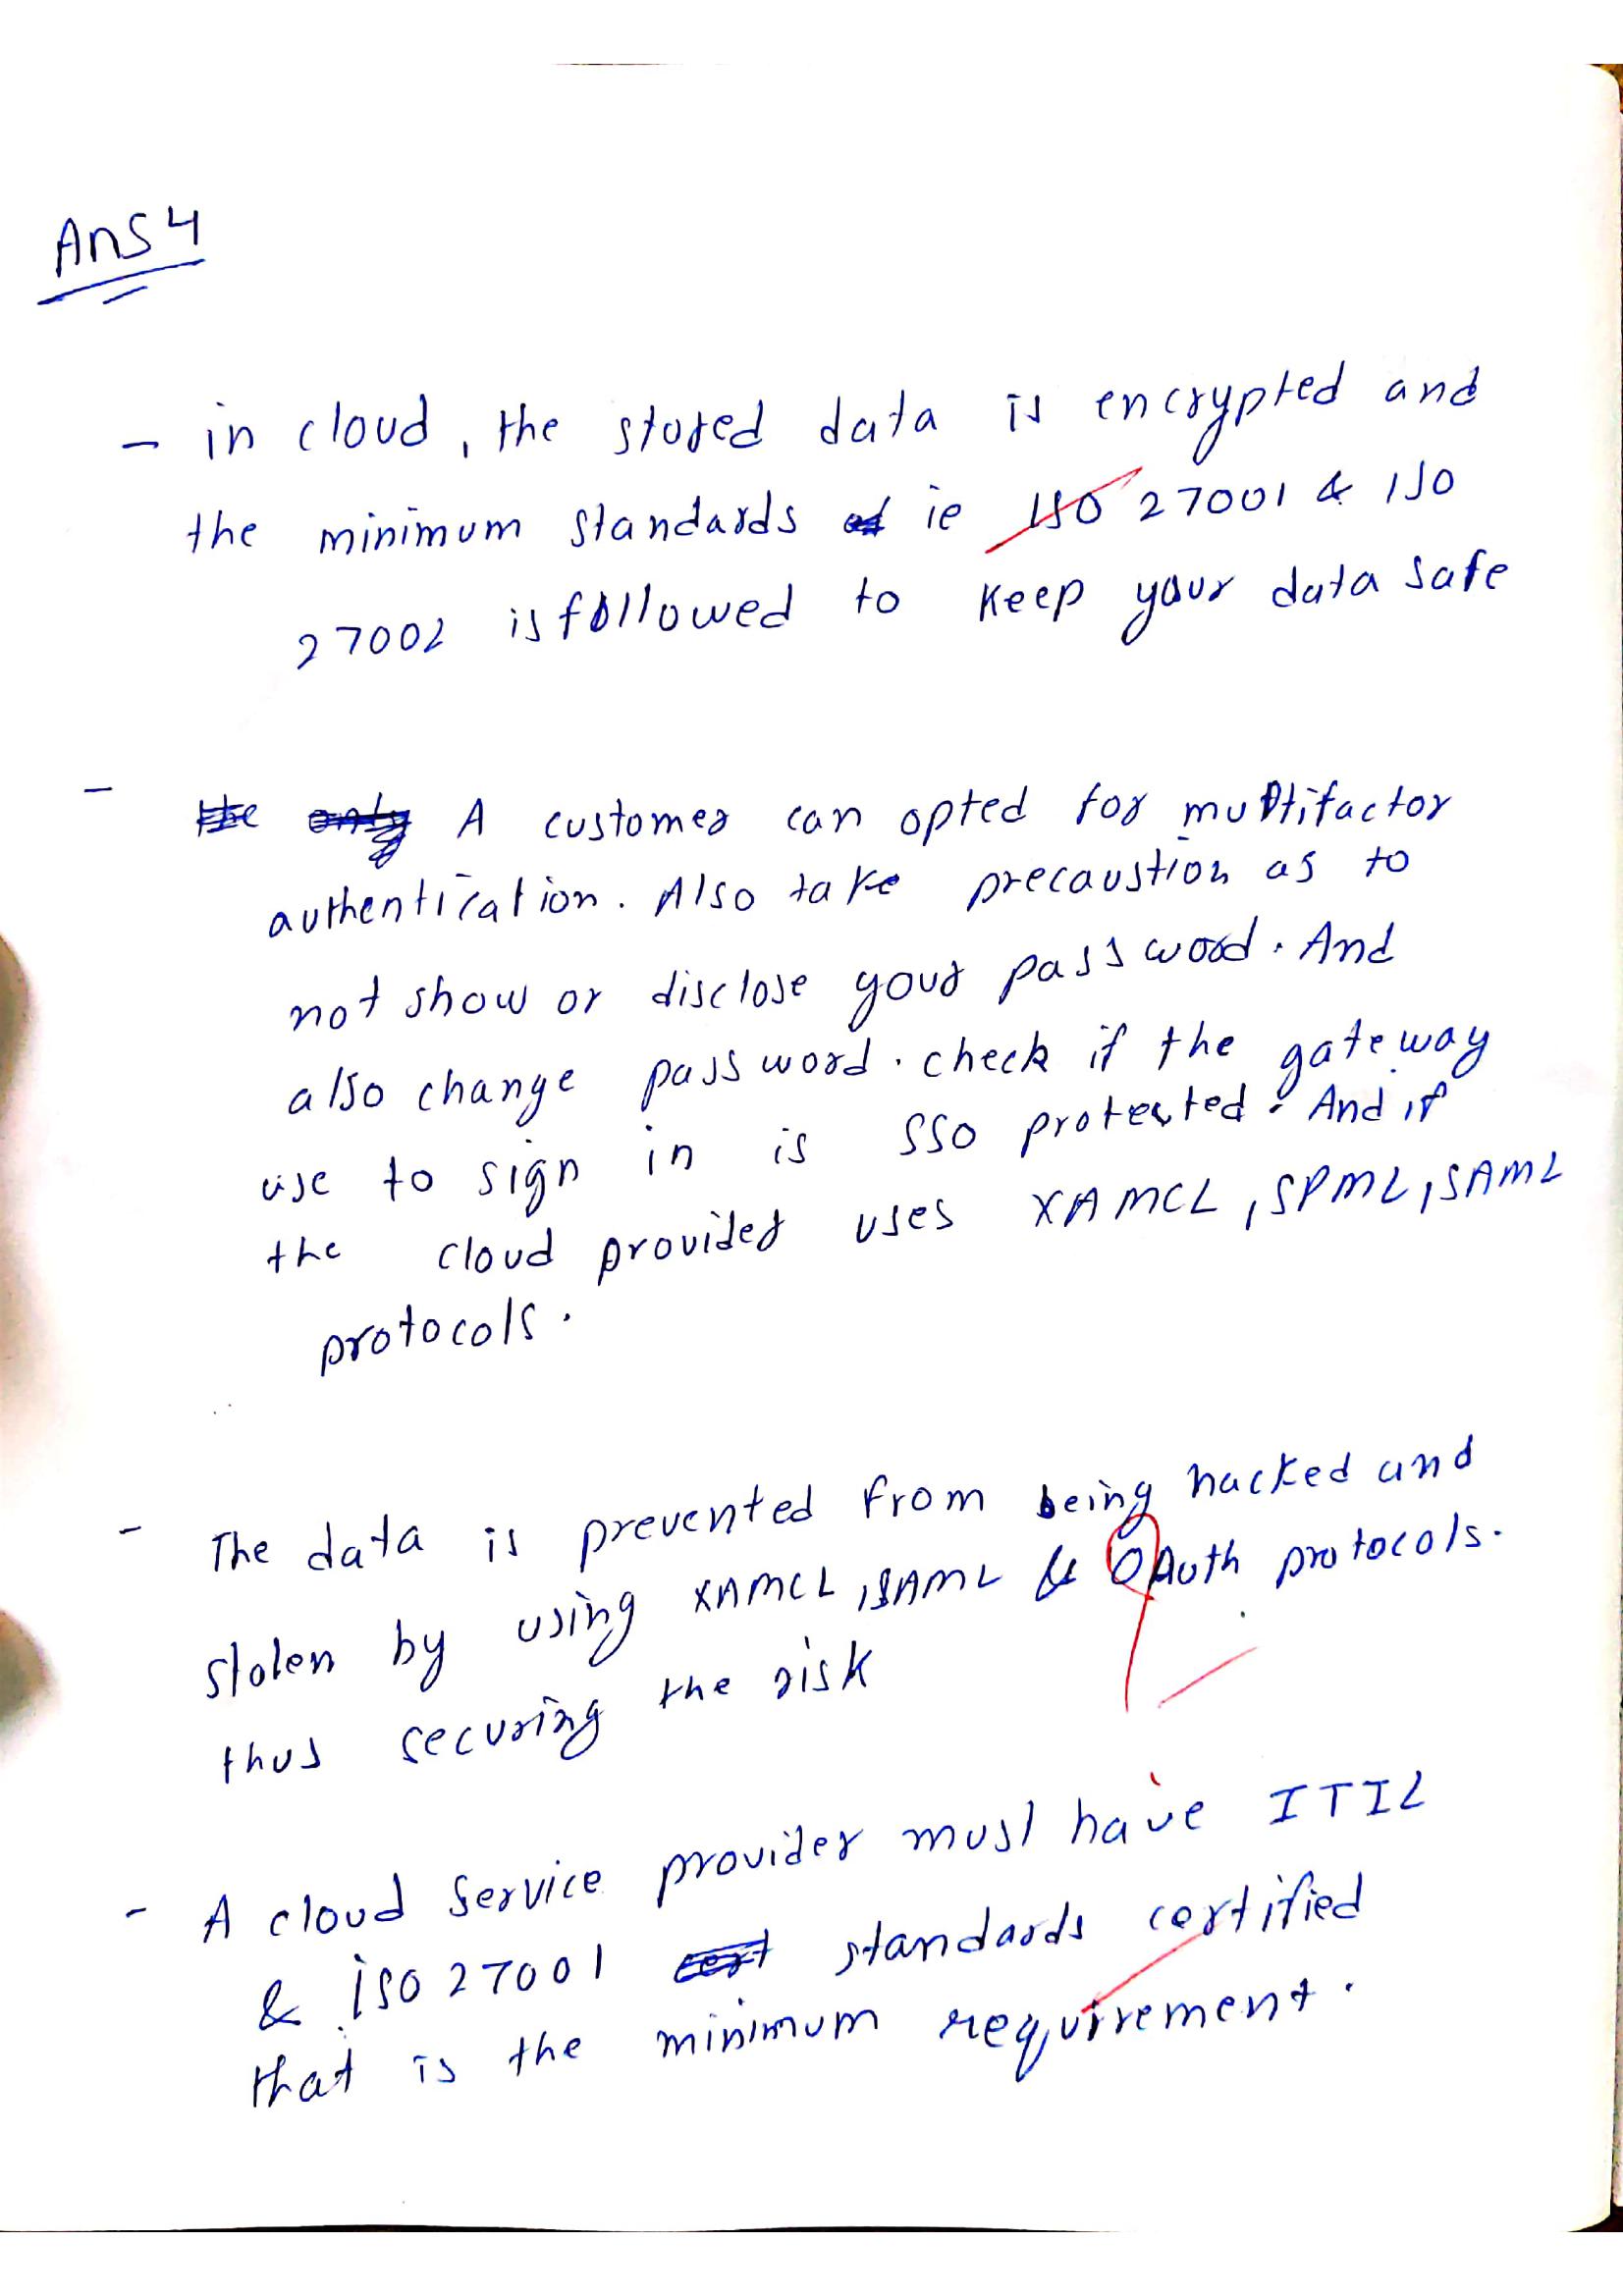 Ans 4
- in cloud, the stored data is encrypted and
the minimum standards ie ISO 27001 & ISO
27002 is followed to keep your data safe
- A customer can opted for multifactor
authentication. Also take precaustion as to
not show or disclose your password. And
also change password. check if the gateway
use to sign in is SSO protected. And if
the cloud provider uses XAMCL, SPML, SAML
protocols.
- The data is prevented from being hacked and
stolen by using XAMCL, SAML & OAuth protocols.
thus securing the risk
- A cloud service provider must have ITIL
& ISO 27001 standards certified
that is the minimum requirement.